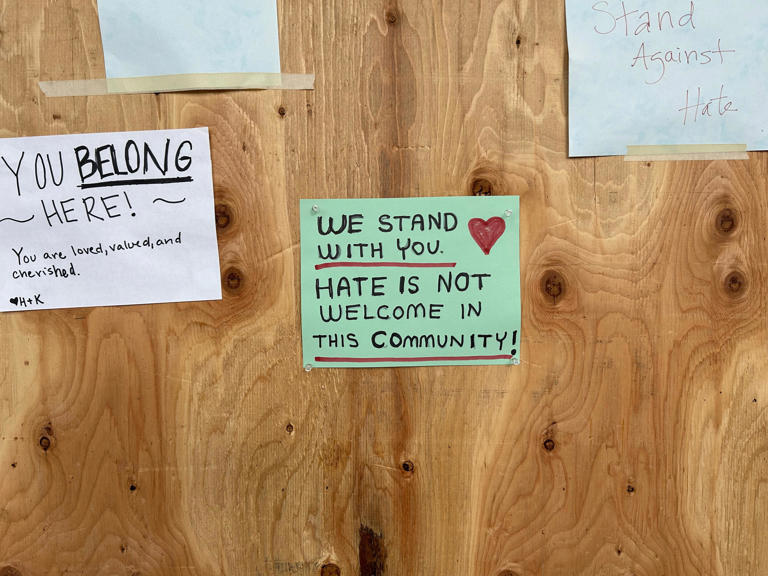 YOU BELONG
~ HERE! ~
You are loved, valued, and
cherished.
♥H+K
WE STAND
WITH YOU.
HATE IS NOT
WELCOME IN
THIS COMMUNITY!
Stand
Against
Hate